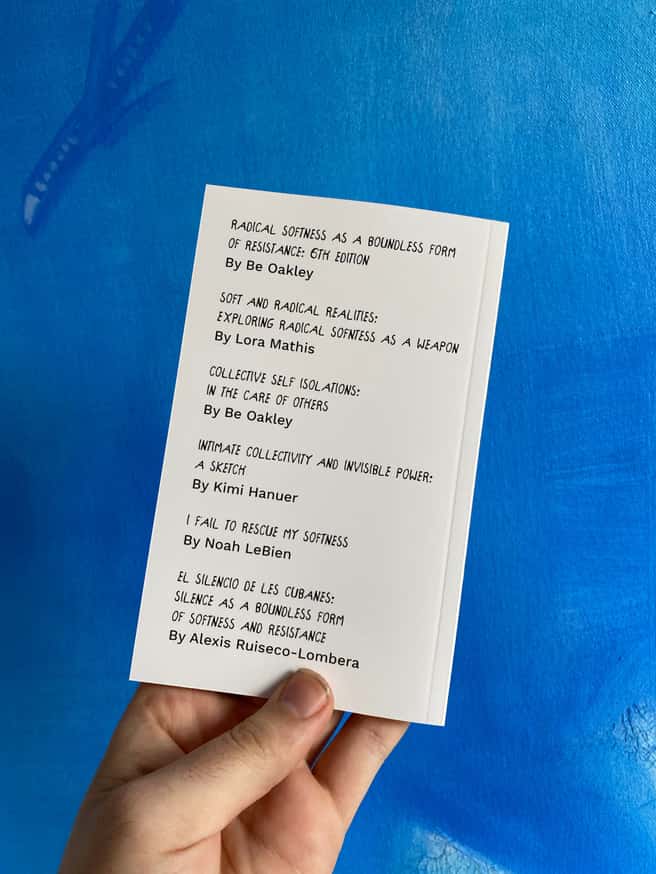 RADICAL SOFTNESS AS A BOUNDLESS FORM
OF RESISTANCE: 6TH EDITION
By Be Oakley
SOFT AND RADICAL REALITIES:
EXPLORING RADICAL SOFNTESS AS A WEAPON
By Lora Mathis
COLLECTIVE SELF ISOLATIONS:
IN THE CARE OF OTHERS
By Be Oakley
INTIMATE COLLECTIVITY AND INVISIBLE POWER:
A SKETCH
By Kimi Hanuer
I FAIL TO RESCUE MY SOFTNESS
By Noah LeBien
EL SILENCIO DE LES CUBANES:
SILENCE AS A BOUNDLESS FORM
OF SOFTNESS AND RESISTANCE
By Alexis Ruiseco-Lombera